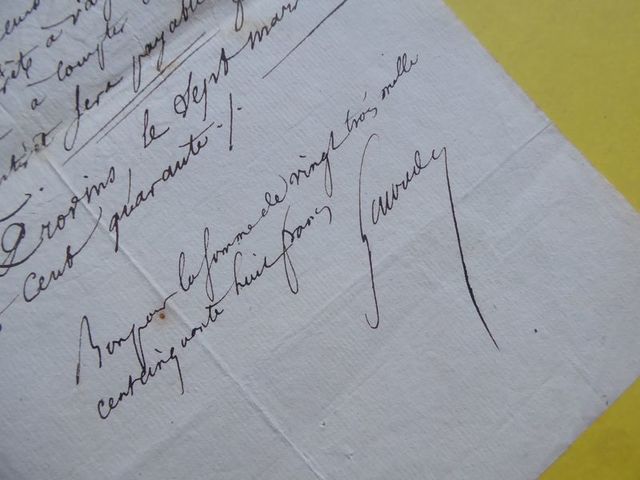 à compter
sera payable
Provins, le Sept mar
cent quarante ./.
Bon pour la somme de vingt trois mille
cent cinquante huit francs